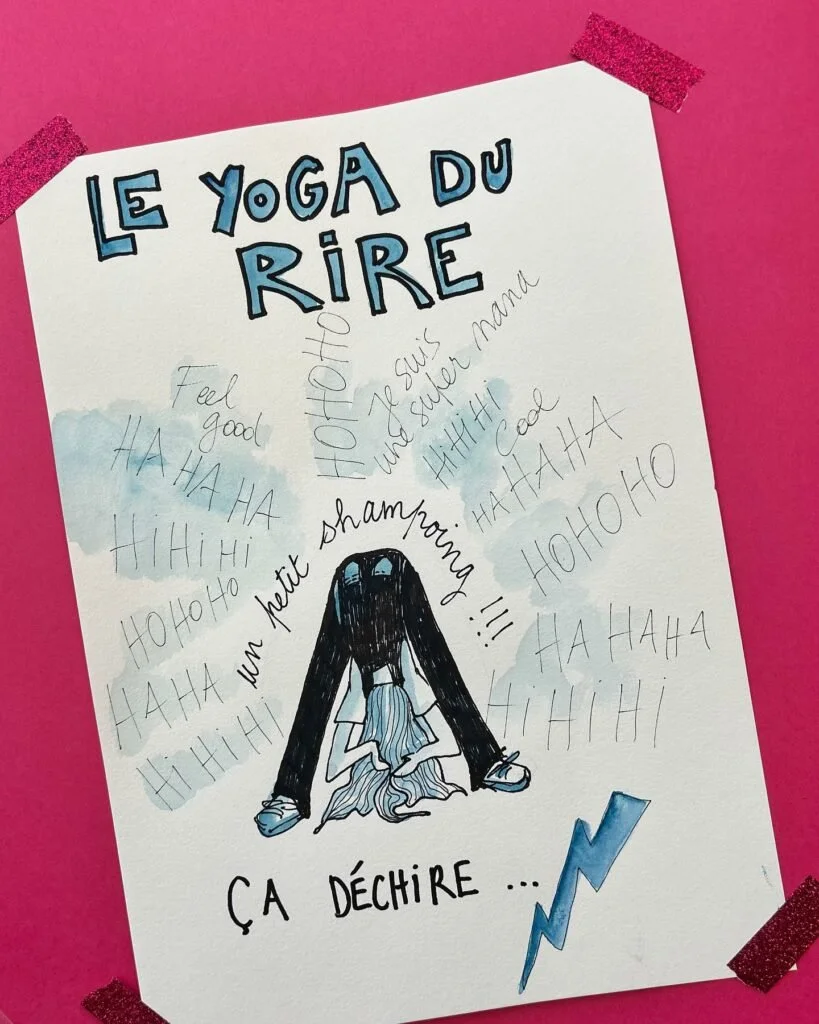 LE YOGA DU
RIRE
Feel
good
HA HA HA
HiHiHi
HOHOHO
HAHA
HiHiHi
HOHOHO
Je suis
une super nana
HiHiHi
Cool
HAHAHA
HOHOHO
HA HAHA
HiHiHi
un petit shampoing !!!
ÇA DÉCHIRE ...